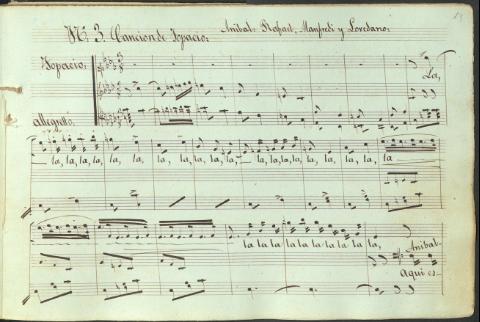 Nº 3. Cancion de Topacio.
Anibal. Rafael. Manfredi y Loredano.
Topacio.
La,
Allegretto.
la, la, la, la, la, la, la, la, la, la, la, la, la, la, la, la, la, la
la la la la la la la la la la,
Anibal.
Aqui es